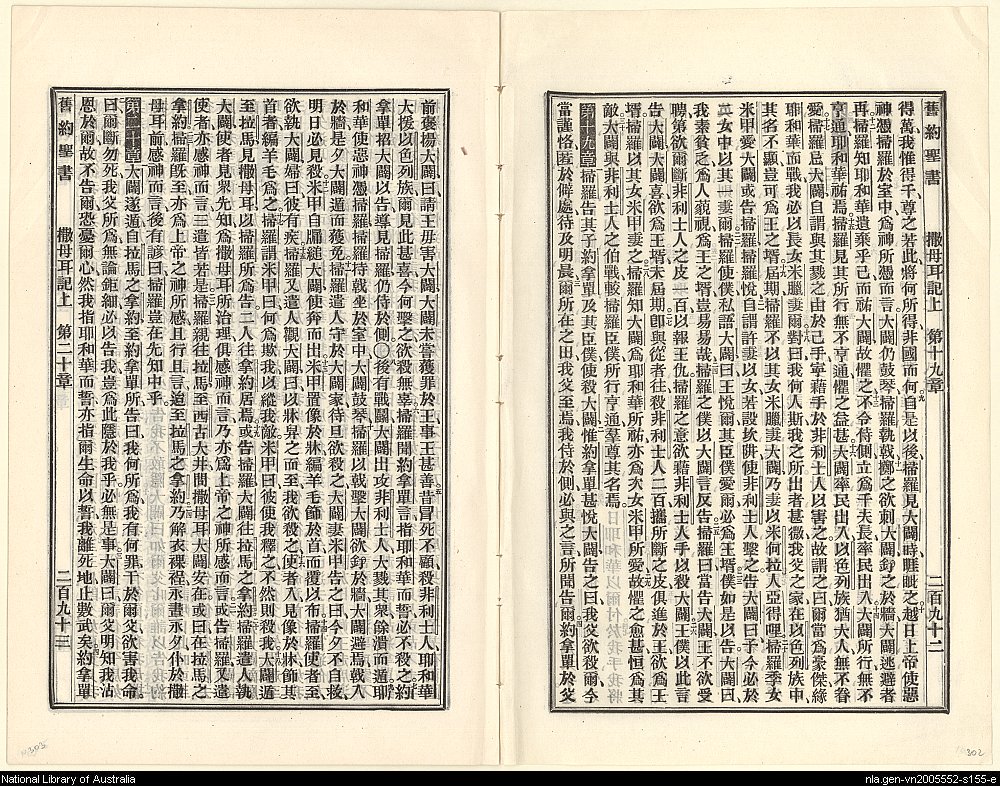 舊約聖書 撒母耳記上 第十九章 二百九十二
得萬我惟得千尊之若此將何所得非國而何自是以後掃羅見大闢時睚眦之越日上帝使惡
神憑掃羅於室中為神所憑而言大闢仍鼓琴掃羅執戟擲之欲刺大闢釘之於牆大闢逃避者
再掃羅知耶和華遺棄乎己而祐大闢故懼之不令侍側立為千夫長率民出入大闢所行無不
亨通耶和華祐焉掃羅見其所行無不亨通懼之益甚大闢率民出入以色列族猶大人無不眷
愛掃羅忌大闢自謂與其戮之由於己手寧藉手於非利士人以害之故謂之曰爾當為豪傑緣
耶和華而戰我必以長女米臘妻爾對曰我何人斯我之所出者甚微我父之家在以色列族中
其名不顯豈可為王之壻屆期掃羅不以其女米臘妻大闢乃妻以米何拉人亞得哩掃羅季女
米甲愛大闢或告掃羅掃羅悅自謂許妻以女若設坎阱使非利士人擊之告大闢曰予今必於
二女中以其一妻爾掃羅使僕私語大闢曰王悅爾其臣僕愛爾必為王壻僕如是以告大闢曰
我素貧乏為人藐視為王之壻豈易易哉掃羅之僕以大闢言反告掃羅曰當告大闢王不欲受
聘第欲爾斷非利士人之皮一百以報王仇掃羅之意欲藉非利士人手以殺大闢王僕以此言
告大闢大闢喜欲為王壻未屆期卽與從者往殺非利士人二百攜所斷之皮俱進於王欲為王
壻掃羅以其女米甲妻之掃羅知大闢為耶和華所祐亦為次女米甲所愛故懼之愈甚恒為其
敵大闢與非利士人之伯戰較掃羅臣僕所行亨通羣尊其名焉
第十九章掃羅告其子約拿單及其臣僕使殺大闢惟約拿單甚悅大闢告之曰我父欲殺爾今
當謹恪匿於僻處待及明晨爾所在之田我父至焉我侍於側必與之言所聞告爾約拿單於父
前褒揚大闢曰請王毋害大闢大闢未嘗獲罪於王事王甚善昔冒死不顧殺非利士人耶和華
大援以色列族爾見此甚喜今何擊之欲殺無辜掃羅聞約拿單言指耶和華而誓必不殺之約
拿單招大闢以告導見掃羅仍侍於側〇後有戰鬬大闢出攻非利士人大戮其衆餘潰而遁耶
和華使惡神憑掃羅掃羅持戟坐於室中大闢鼓琴掃羅以戟擊大闢欲釘於牆大闢避焉戟入
於牆是夕大闢遁而獲免掃羅遣人守於大闢家待旦欲殺之大闢妻米甲告之曰今夕不自救
明日必見殺米甲自牖縋大闢使奔而出米甲置像於牀編羊毛飾於首而覆以布掃羅使者至
欲執大闢婦曰彼有疾掃羅又遣人觀大闢曰以牀舁之而至我欲殺之使者入見像於牀飾其
首者編羊毛為之掃羅謂米甲曰何為欺我以縱我敵米甲曰彼使我釋之不然則殺我大闢遁
至拉馬見撒母耳以掃羅所為告二人往拿約居焉或告掃羅大闢往拉馬之拿約掃羅遣人執
大闢使者見衆先知為撒母耳所治理俱感神而言乃亦為上帝之神所感而言或告掃羅又遣
使者亦感神而言三遣皆若是掃羅親往拉馬至西古大井間撒母耳大闢安在或曰在拉馬之
拿約掃羅旣至亦為上帝之神所感且行且言迨至拉馬之拿約乃解衣裸裎永晝永夕仆於撒
母耳前感神而言後有諺曰掃羅豈在先知中乎
第二十章大闢遂遁自拉馬之拿約至約拿單所告曰我何所為我有何罪干於爾父欲害我命
曰爾斷勿死我父所為無論鉅細必以告我豈為此隱於我乎必無是事大闢曰爾父明知我沾
恩於爾故不告爾恐憂爾心然我指耶和華而誓亦指爾生命以誓我離死地止數武矣約拿單
舊約聖書 撒母耳記上 第二十章 二百九十三
302
National Library of Australia
nla.gen-vn2005552-s155-e